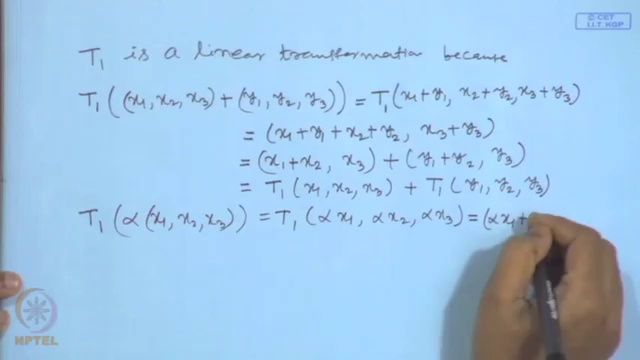 © CET
I.I.T. KGP
T₁ is a linear transformation because
T₁((x₁, x₂, x₃) + (y₁, y₂, y₃)) = T₁(x₁+y₁, x₂+y₂, x₃+y₃)
= (x₁+y₁+x₂+y₂, x₃+y₃)
= (x₁+x₂, x₃) + (y₁+y₂, y₃)
= T₁(x₁, x₂, x₃) + T₁(y₁, y₂, y₃)
T₁(α(x₁, x₂, x₃)) = T₁(αx₁, αx₂, αx₃) = (αx₁+
NPTEL